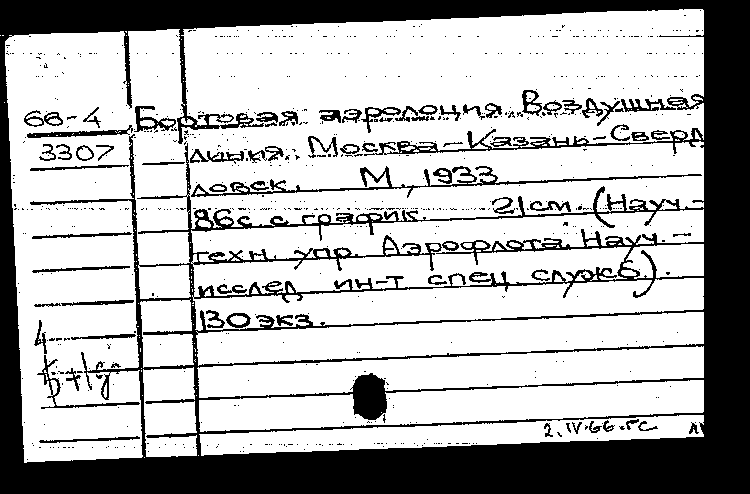 66-4 Бортовая аэролоция. Воздушная
3307 линия. Москва-Казань-Сверд
ловск. М., 1933
86с. с график. 21см. (Науч.-
техн. упр. Аэрофлота. Науч.-
исслед. ин-т спец. служб).
130 экз.
4
2.IV.66.